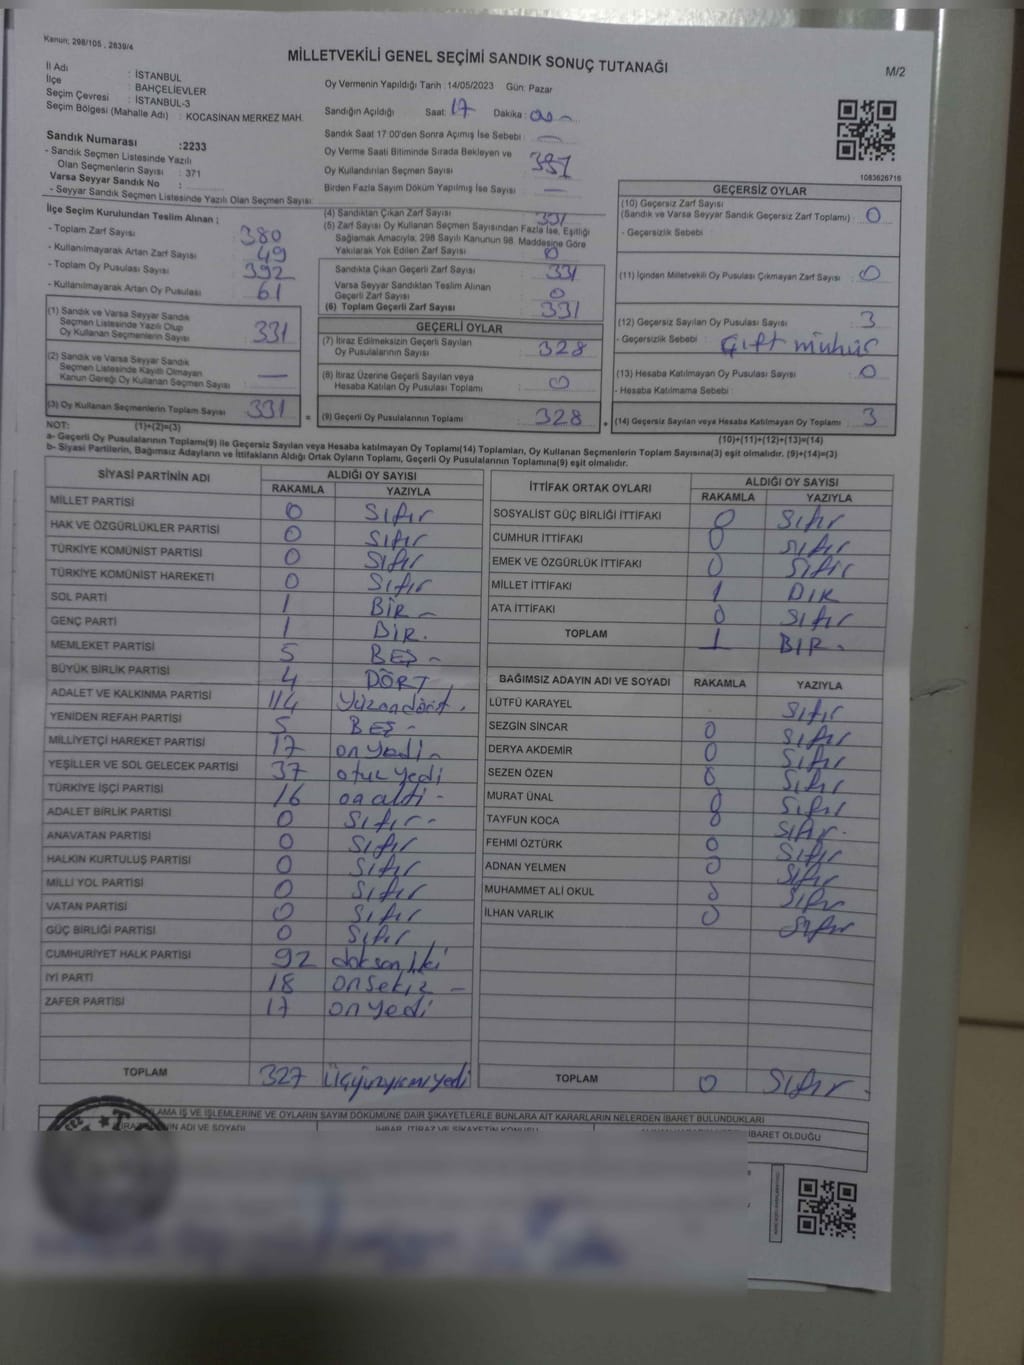 Kanun; 298/105 , 2839/4
MİLLETVEKİLİ GENEL SEÇİMİ SANDIK SONUÇ TUTANAĞI
M/2
İl Adı : İSTANBUL
İlçe : BAHÇELİEVLER
Seçim Çevresi : İSTANBUL-3
Seçim Bölgesi (Mahalle Adı) : KOCASİNAN MERKEZ MAH.
Sandık Numarası :2233
- Sandık Seçmen Listesinde Yazılı
Olan Seçmenlerin Sayısı : 371
Varsa Seyyar Sandık No :
- Seyyar Sandık Seçmen Listesinde Yazılı Olan Seçmen Sayısı:
Oy Vermenin Yapıldığı Tarih : 14/05/2023 Gün: Pazar
Sandığın Açıldığı Saat: 17 Dakika: 00
Sandık Saat 17:00'den Sonra Açmış İse Sebebi : —
Oy Verme Saati Bitiminde Sırada Bekleyen ve
Oy Kullandırılan Seçmen Sayısı :
Birden Fazla Sayım Döküm Yapılmış İse Sayısı : —
1083626716
İlçe Seçim Kurulundan Teslim Alınan ;
- Toplam Zarf Sayısı : 380
- Kullanılmayarak Artan Zarf Sayısı : 49
- Toplam Oy Pusulası Sayısı : 392
- Kullanılmayarak Artan Oy Pusulası : 61
(1) Sandık ve Varsa Seyyar Sandık
Seçmen Listesinde Yazılı Olup
Oy Kullanan Seçmenlerin Sayısı : 331
(2) Sandık ve Varsa Seyyar Sandık
Seçmen Listesinde Kayıtlı Olmayan
Kanun Gereği Oy Kullanan Seçmen Sayısı : —
(3) Oy Kullanan Seçmenlerin Toplam Sayısı : 331
(4) Sandıktan Çıkan Zarf Sayısı : 331
(5) Zarf Sayısı Oy Kullanan Seçmen Sayısından Fazla İse, Eşitliği
Sağlamak Amacıyla; 298 Sayılı Kanunun 98. Maddesine Göre
Yakılarak Yok Edilen Zarf Sayısı : 0
Sandıkta Çıkan Geçerli Zarf Sayısı : 331
Varsa Seyyar Sandıktan Teslim Alınan
Geçerli Zarf Sayısı : 0
(6) Toplam Geçerli Zarf Sayısı : 331
GEÇERLİ OYLAR
(7) İtiraz Edilmeksizin Geçerli Sayılan
Oy Pusulalarının Sayısı : 328
(8) İtiraz Üzerine Geçerli Sayılan veya
Hesaba Katılan Oy Pusulası Toplamı : 0
= (9) Geçerli Oy Pusulalarının Toplamı : 328
GEÇERSİZ OYLAR
(10) Geçersiz Zarf Sayısı
(Sandık ve Varsa Seyyar Sandık Geçersiz Zarf Toplamı) : 0
- Geçersizlik Sebebi :
(11) İçinden Milletvekili Oy Pusulası Çıkmayan Zarf Sayısı : 0
(12) Geçersiz Sayılan Oy Pusulası Sayısı : 3
- Geçersizlik Sebebi : Çift mühür
(13) Hesaba Katılmayan Oy Pusulası Sayısı : 0
- Hesaba Katılmama Sebebi :
+ (14) Geçersiz Sayılan veya Hesaba Katılmayan Oy Toplamı : 3
NOT: (1)+(2)=(3)
(10)+(11)+(12)+(13)=(14)
a- Geçerli Oy Pusulalarının Toplamı(9) ile Geçersiz Sayılan veya Hesaba katılmayan Oy Toplamı(14) Toplamları, Oy Kullanan Seçmenlerin Toplam Sayısına(3) eşit olmalıdır. (9)+(14)=(3)
b- Siyasi Partilerin, Bağımsız Adayların ve İttifakların Aldığı Ortak Oyların Toplamı, Geçerli Oy Pusulalarının Toplamına(9) eşit olmalıdır.
SİYASİ PARTİNİN ADI ALDIĞI OY SAYISI
RAKAMLA YAZIYLA
MİLLET PARTİSİ 0 Sıfır
HAK VE ÖZGÜRLÜKLER PARTİSİ 0 Sıfır
TÜRKİYE KOMÜNİST PARTİSİ 0 Sıfır
TÜRKİYE KOMÜNİST HAREKETİ 0 Sıfır
SOL PARTİ 1 BİR
GENÇ PARTİ 1 BİR.
MEMLEKET PARTİSİ 5 BEŞ
BÜYÜK BİRLİK PARTİSİ 4 DÖRT
ADALET VE KALKINMA PARTİSİ 114 Yüzondört.
YENİDEN REFAH PARTİSİ 5 BEŞ
MİLLİYETÇİ HAREKET PARTİSİ 17 onyedi
YEŞİLLER VE SOL GELECEK PARTİSİ 37 otuzyedi
TÜRKİYE İŞÇİ PARTİSİ 16 onaltı
ADALET BİRLİK PARTİSİ 0 Sıfır
ANAVATAN PARTİSİ 0 Sıfır
HALKIN KURTULUŞ PARTİSİ 0 Sıfır
MİLLİ YOL PARTİSİ 0 Sıfır
VATAN PARTİSİ 0 Sıfır
GÜÇ BİRLİĞİ PARTİSİ 0 Sıfır
CUMHURİYET HALK PARTİSİ 92 doksaniki
İYİ PARTİ 18 onsekiz
ZAFER PARTİSİ 17 onyedi
TOPLAM 327 üçyüzyirmiyedi
İTTİFAK ORTAK OYLARI ALDIĞI OY SAYISI
RAKAMLA YAZIYLA
SOSYALİST GÜÇ BİRLİĞİ İTTİFAKI 0 Sıfır
CUMHUR İTTİFAKI 0 Sıfır
EMEK VE ÖZGÜRLÜK İTTİFAKI 0 Sıfır
MİLLET İTTİFAKI 1 BİR
ATA İTTİFAKI 0 Sıfır
TOPLAM 1 BİR.
BAĞIMSIZ ADAYIN ADI VE SOYADI RAKAMLA YAZIYLA
LÜTFÜ KARAYEL Sıfır
SEZGİN SİNCAR 0 Sıfır
DERYA AKDEMİR 0 Sıfır
SEZEN ÖZEN 0 Sıfır
MURAT ÜNAL 0 Sıfır
TAYFUN KOCA 0 Sıfır.
FEHMİ ÖZTÜRK 0 Sıfır
ADNAN YELMEN 0 Sıfır
MUHAMMET ALİ OKUL 0 Sıfır
İLHAN VARLIK 0 Sıfır
TOPLAM 0 Sıfır.
LAMA İŞ VE İŞLEMLERİNE VE OYLARIN SAYIM DÖKÜMÜNE DAİR ŞİKAYETLERLE BUNLARA AİT KARARLARIN NELERDEN İBARET BULUNDUKLARI
IN ADI VE SOYADI İHBAR, İTİRAZ VE ŞİKAYETİN KONUSU İBARET OLDUĞU